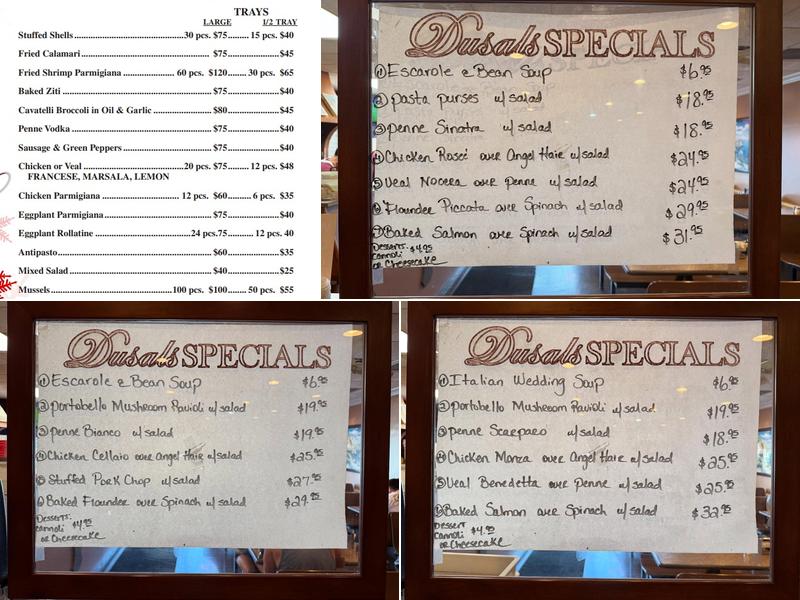 TRAYS
LARGE 1/2 TRAY
Stuffed Shells 30 pcs. $75 15 pcs. $40
Fried Calamari $75 $45
Fried Shrimp Parmigiana 60 pcs. $120 30 pcs. $65
Baked Ziti $75 $40
Cavatelli Broccoli in Oil & Garlic $80 $45
Penne Vodka $75 $40
Sausage & Green Peppers $75 $40
Chicken or Veal 20 pcs. $75 12 pcs. $48
FRANCESE, MARSALA, LEMON
Chicken Parmigiana 12 pcs. $60 6 pcs. $35
Eggplant Parmigiana $75 $40
Eggplant Rollatine 24 pcs.75 12 pcs. 40
Antipasto $60 $35
Mixed Salad $40 $25
Mussels 100 pcs. $100 50 pcs. $55
Dusals SPECIALS
① Escarole & Bean Soup $6.95
② pasta purses w/ salad $18.95
③ penne Sinatra w/ salad $18.95
④ Chicken Rosée over Angel Hair w/ salad $24.95
⑤ Veal Nocera over penne w/ salad $24.95
⑥ Flounder Piccata over Spinach w/ salad $29.95
⑦ Baked Salmon over Spinach w/ salad $31.95
Desserts: $4.95
Cannoli
or Cheesecake
Dusals SPECIALS
① Escarole & Bean Soup $6.95
② portobello Mushroom Ravioli w/ salad $19.95
③ penne Bianco w/ salad $19.95
④ Chicken Cellaio over Angel Hair w/ salad $25.95
⑤ Stuffed Pork Chop w/ salad $27.95
⑥ Baked Flounder over Spinach w/ salad $29.95
Desserts:
Cannoli $4.95
or Cheesecake
Dusals SPECIALS
① Italian Wedding Soup $6.95
② portobello Mushroom Ravioli w/ salad $19.95
③ penne Scarparo w/ salad $18.95
④ Chicken Monza over Angel Hair w/ salad $25.95
⑤ Veal Benedetta over penne w/ salad $25.95
⑥ Baked Salmon over Spinach w/ salad $32.95
Dessert
Cannoli $4.95
or Cheesecake